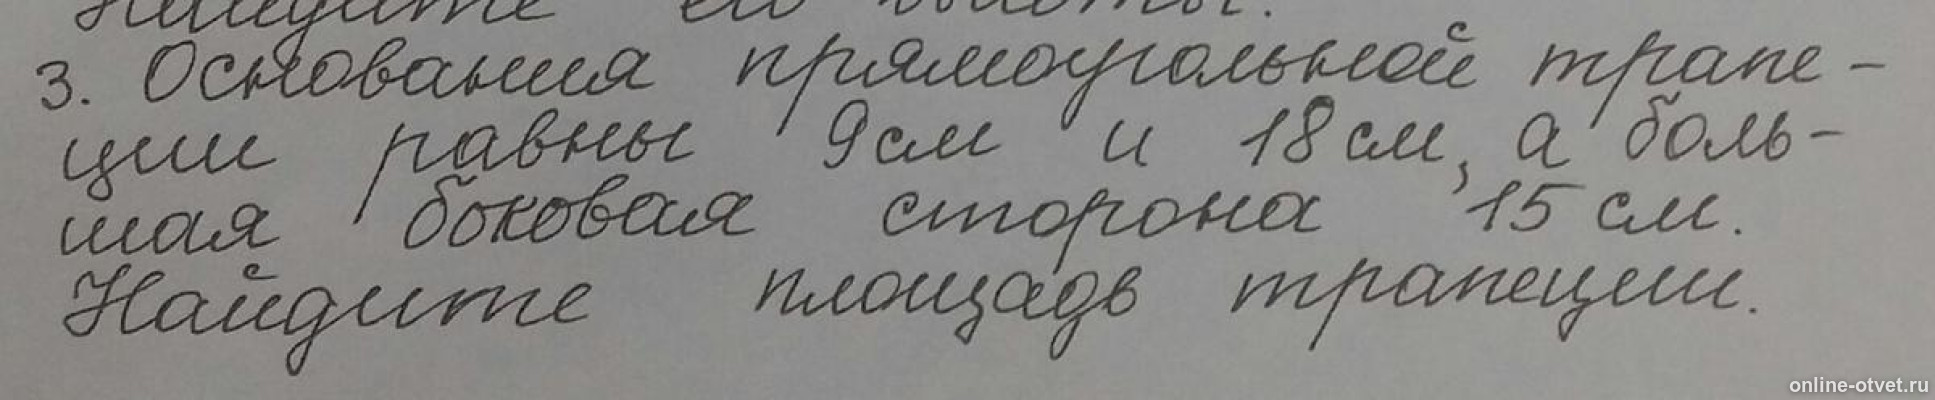 Найдите его высоты.
3. Основания прямоугольной трапе-
ции равны 9см и 18см, а боль-
шая боковая сторона 15 см.
Найдите площадь трапеции.
online-otvet.ru